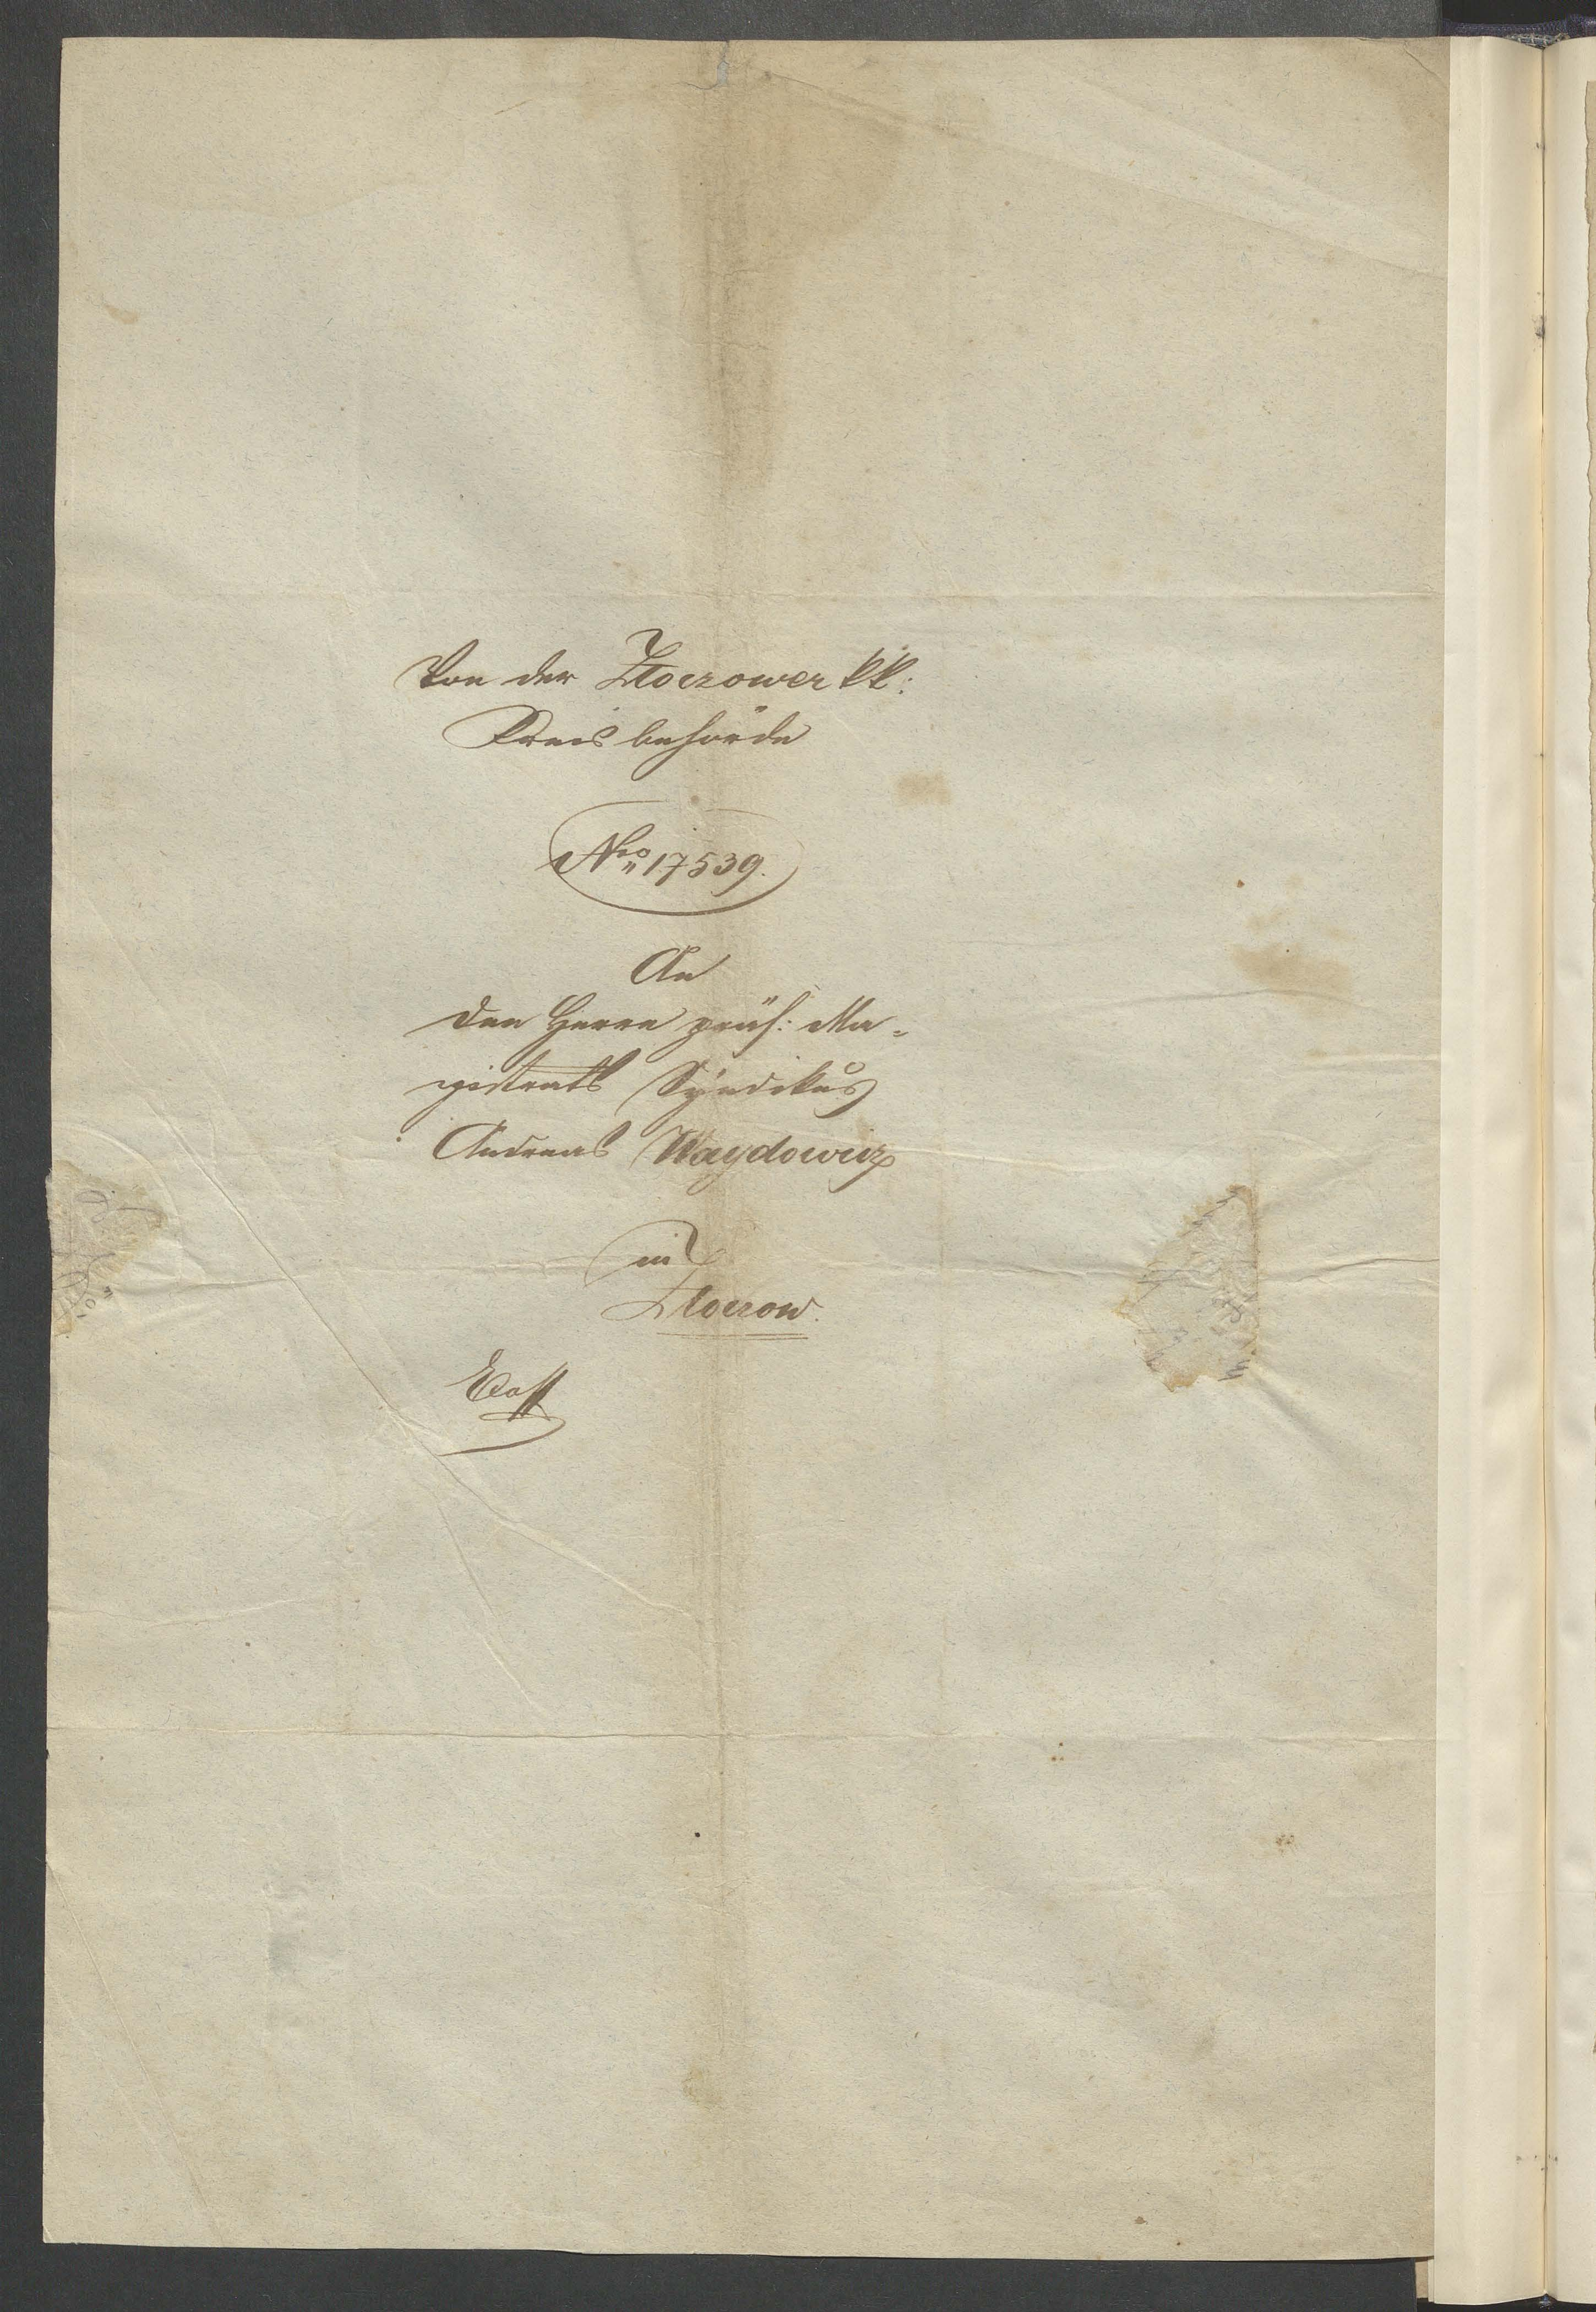 Von der Złoczower kk:
Kreisbehörde
Nro 17539.
An
den Herrn prüf: Ma=
gistrats Syndikus
Andreas Waydowicz
in
Złoczow.